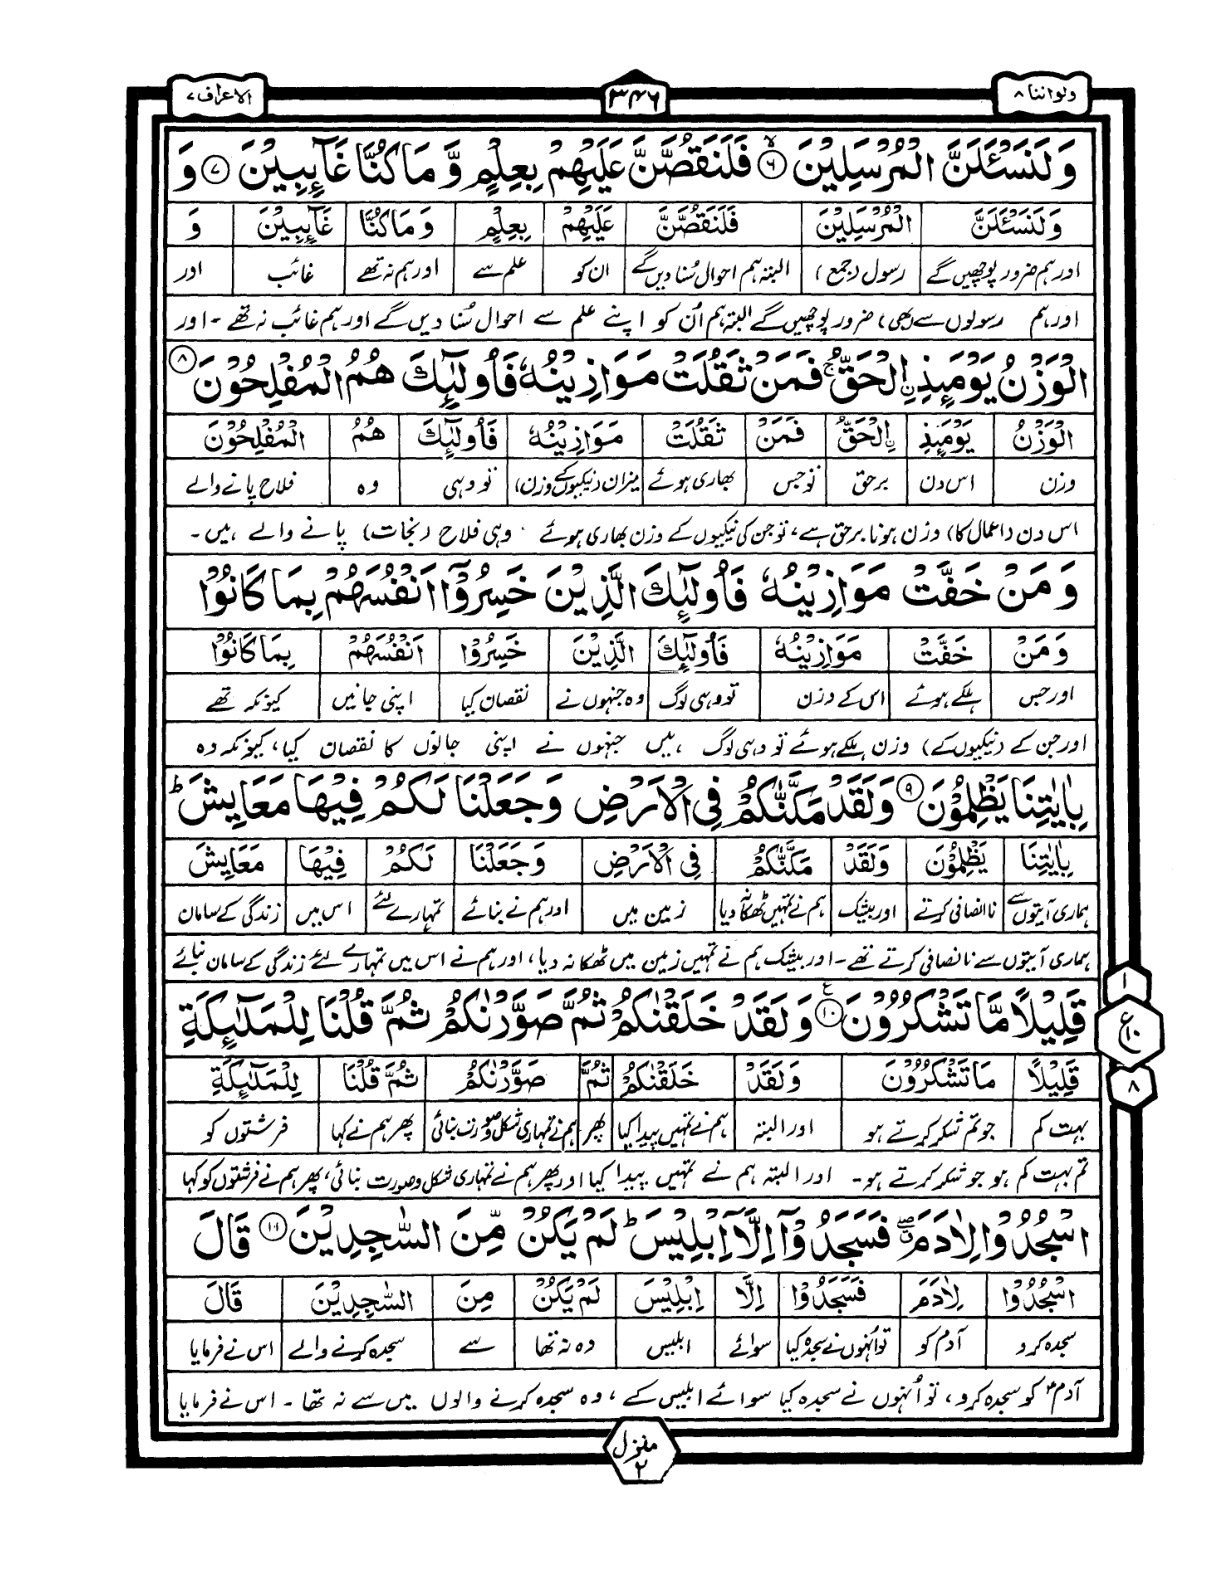 ولواننا ۸
۳۴۶
الاعراف ۷
وَلَنَسْـَٔلَنَّ الْمُرْسَلِيْنَ ۙ۶ فَلَنَقُصَّنَّ عَلَيْهِمْ بِعِلْمٍ وَّ مَا كُنَّا غَآئِبِيْنَ ۷ وَ
وَلَنَسْـَٔلَنَّ الْمُرْسَلِيْنَ فَلَنَقُصَّنَّ عَلَيْهِمْ بِعِلْمٍ وَمَا كُنَّا غَآئِبِيْنَ وَ
اور ہم ضرور پوچھیں گے رسول (جمع) البتہ ہم احوال سُنا دیں گے ان کو علم سے اور ہم نہ تھے غائب اور
اور ہم رسولوں سے (بھی) ضرور پوچھیں گے البتہ ہم اُن کو اپنے علم سے احوال سُنا دیں گے اور ہم غائب نہ تھے ۔ اور
الْوَزْنُ يَوْمَئِذِ ِۨالْحَقُّ ۚ فَمَنْ ثَقُلَتْ مَوَازِيْنُهٗ فَاُولٰٓئِكَ هُمُ الْمُفْلِحُوْنَ ۸
الْوَزْنُ يَوْمَئِذِ ِۨالْحَقُّ فَمَنْ ثَقُلَتْ مَوَازِيْنُهٗ فَاُولٰٓئِكَ هُمُ الْمُفْلِحُوْنَ
وزن اس دن برحق تو جس بھاری ہوئے میزان (نیکیوں کے وزن) تو وہی وہ فلاح پانے والے
اس دن (اعمال کا) وزن ہونا برحق ہے، تو جن کی نیکیوں کے وزن بھاری ہوئے وہی فلاح (نجات) پانے والے ہیں ۔
وَمَنْ خَفَّتْ مَوَازِيْنُهٗ فَاُولٰٓئِكَ الَّذِيْنَ خَسِرُوْٓا اَنْفُسَهُمْ بِمَا كَانُوْا
وَمَنْ خَفَّتْ مَوَازِيْنُهٗ فَاُولٰٓئِكَ الَّذِيْنَ خَسِرُوْٓا اَنْفُسَهُمْ بِمَا كَانُوْا
اور جس ہلکے ہوئے اس کے وزن تو وہی لوگ وہ جنہوں نے نقصان کیا اپنی جانیں کیونکہ تھے
اور جن کے (نیکیوں کے) وزن ہلکے ہوئے تو وہی لوگ ہیں جنہوں نے اپنی جانوں کا نقصان کیا، کیونکہ وہ
بِاٰيٰتِنَا يَظْلِمُوْنَ ۹ وَلَقَدْ مَكَّنّٰكُمْ فِى الْاَرْضِ وَجَعَلْنَا لَكُمْ فِيْهَا مَعَايِشَ ؕ
بِاٰيٰتِنَا يَظْلِمُوْنَ وَلَقَدْ مَكَّنّٰكُمْ فِى الْاَرْضِ وَجَعَلْنَا لَكُمْ فِيْهَا مَعَايِشَ
ہماری آیتوں سے ناانصافی کرتے اور بیشک ہم نے تمہیں ٹھکانہ دیا زمین میں اور ہم نے بنائے تمہارے لئے اس میں زندگی کے سامان
ہماری آیتوں سے ناانصافی کرتے تھے ۔ اور بیشک ہم نے تمہیں زمین میں ٹھکانہ دیا، اور ہم نے اس میں تمہارے لئے زندگی کے سامان بنائے
قَلِيْلًا مَّا تَشْكُرُوْنَ ۱۰ع وَلَقَدْ خَلَقْنٰكُمْ ثُمَّ صَوَّرْنٰكُمْ ثُمَّ قُلْنَا لِلْمَلٰٓئِكَةِ
۱
ع ۱۰
۸
قَلِيْلًا مَا تَشْكُرُوْنَ وَلَقَدْ خَلَقْنٰكُمْ ثُمَّ صَوَّرْنٰكُمْ ثُمَّ قُلْنَا لِلْمَلٰٓئِكَةِ
بہت کم جو تم شکر کرتے ہو اور البتہ ہم نے تمہیں پیدا کیا پھر ہم نے تمہاری شکل و صورت بنائی پھر ہم نے کہا فرشتوں کو
تم بہت کم ہو جو شکر کرتے ہو۔ اور البتہ ہم نے تمہیں پیدا کیا اور پھر ہم نے تمہاری شکل و صورت بنائی، پھر ہم نے فرشتوں کو کہا
اسْجُدُوْا لِاٰدَمَ ۖ فَسَجَدُوْٓا اِلَّآ اِبْلِيْسَ ؕ لَمْ يَكُنْ مِّنَ السّٰجِدِيْنَ ۱۱ قَالَ
اسْجُدُوْا لِاٰدَمَ فَسَجَدُوْا اِلَّا اِبْلِيْسَ لَمْ يَكُنْ مِنَ السّٰجِدِيْنَ قَالَ
سجدہ کرو آدم کو تو اُنہوں نے سجدہ کیا سوائے ابلیس وہ نہ تھا سے سجدہ کرنے والے اس نے فرمایا
آدمؑ کو سجدہ کرو، تو اُنہوں نے سجدہ کیا سوائے ابلیس کے، وہ سجدہ کرنے والوں میں سے نہ تھا ۔ اس نے فرمایا
منزل ۲